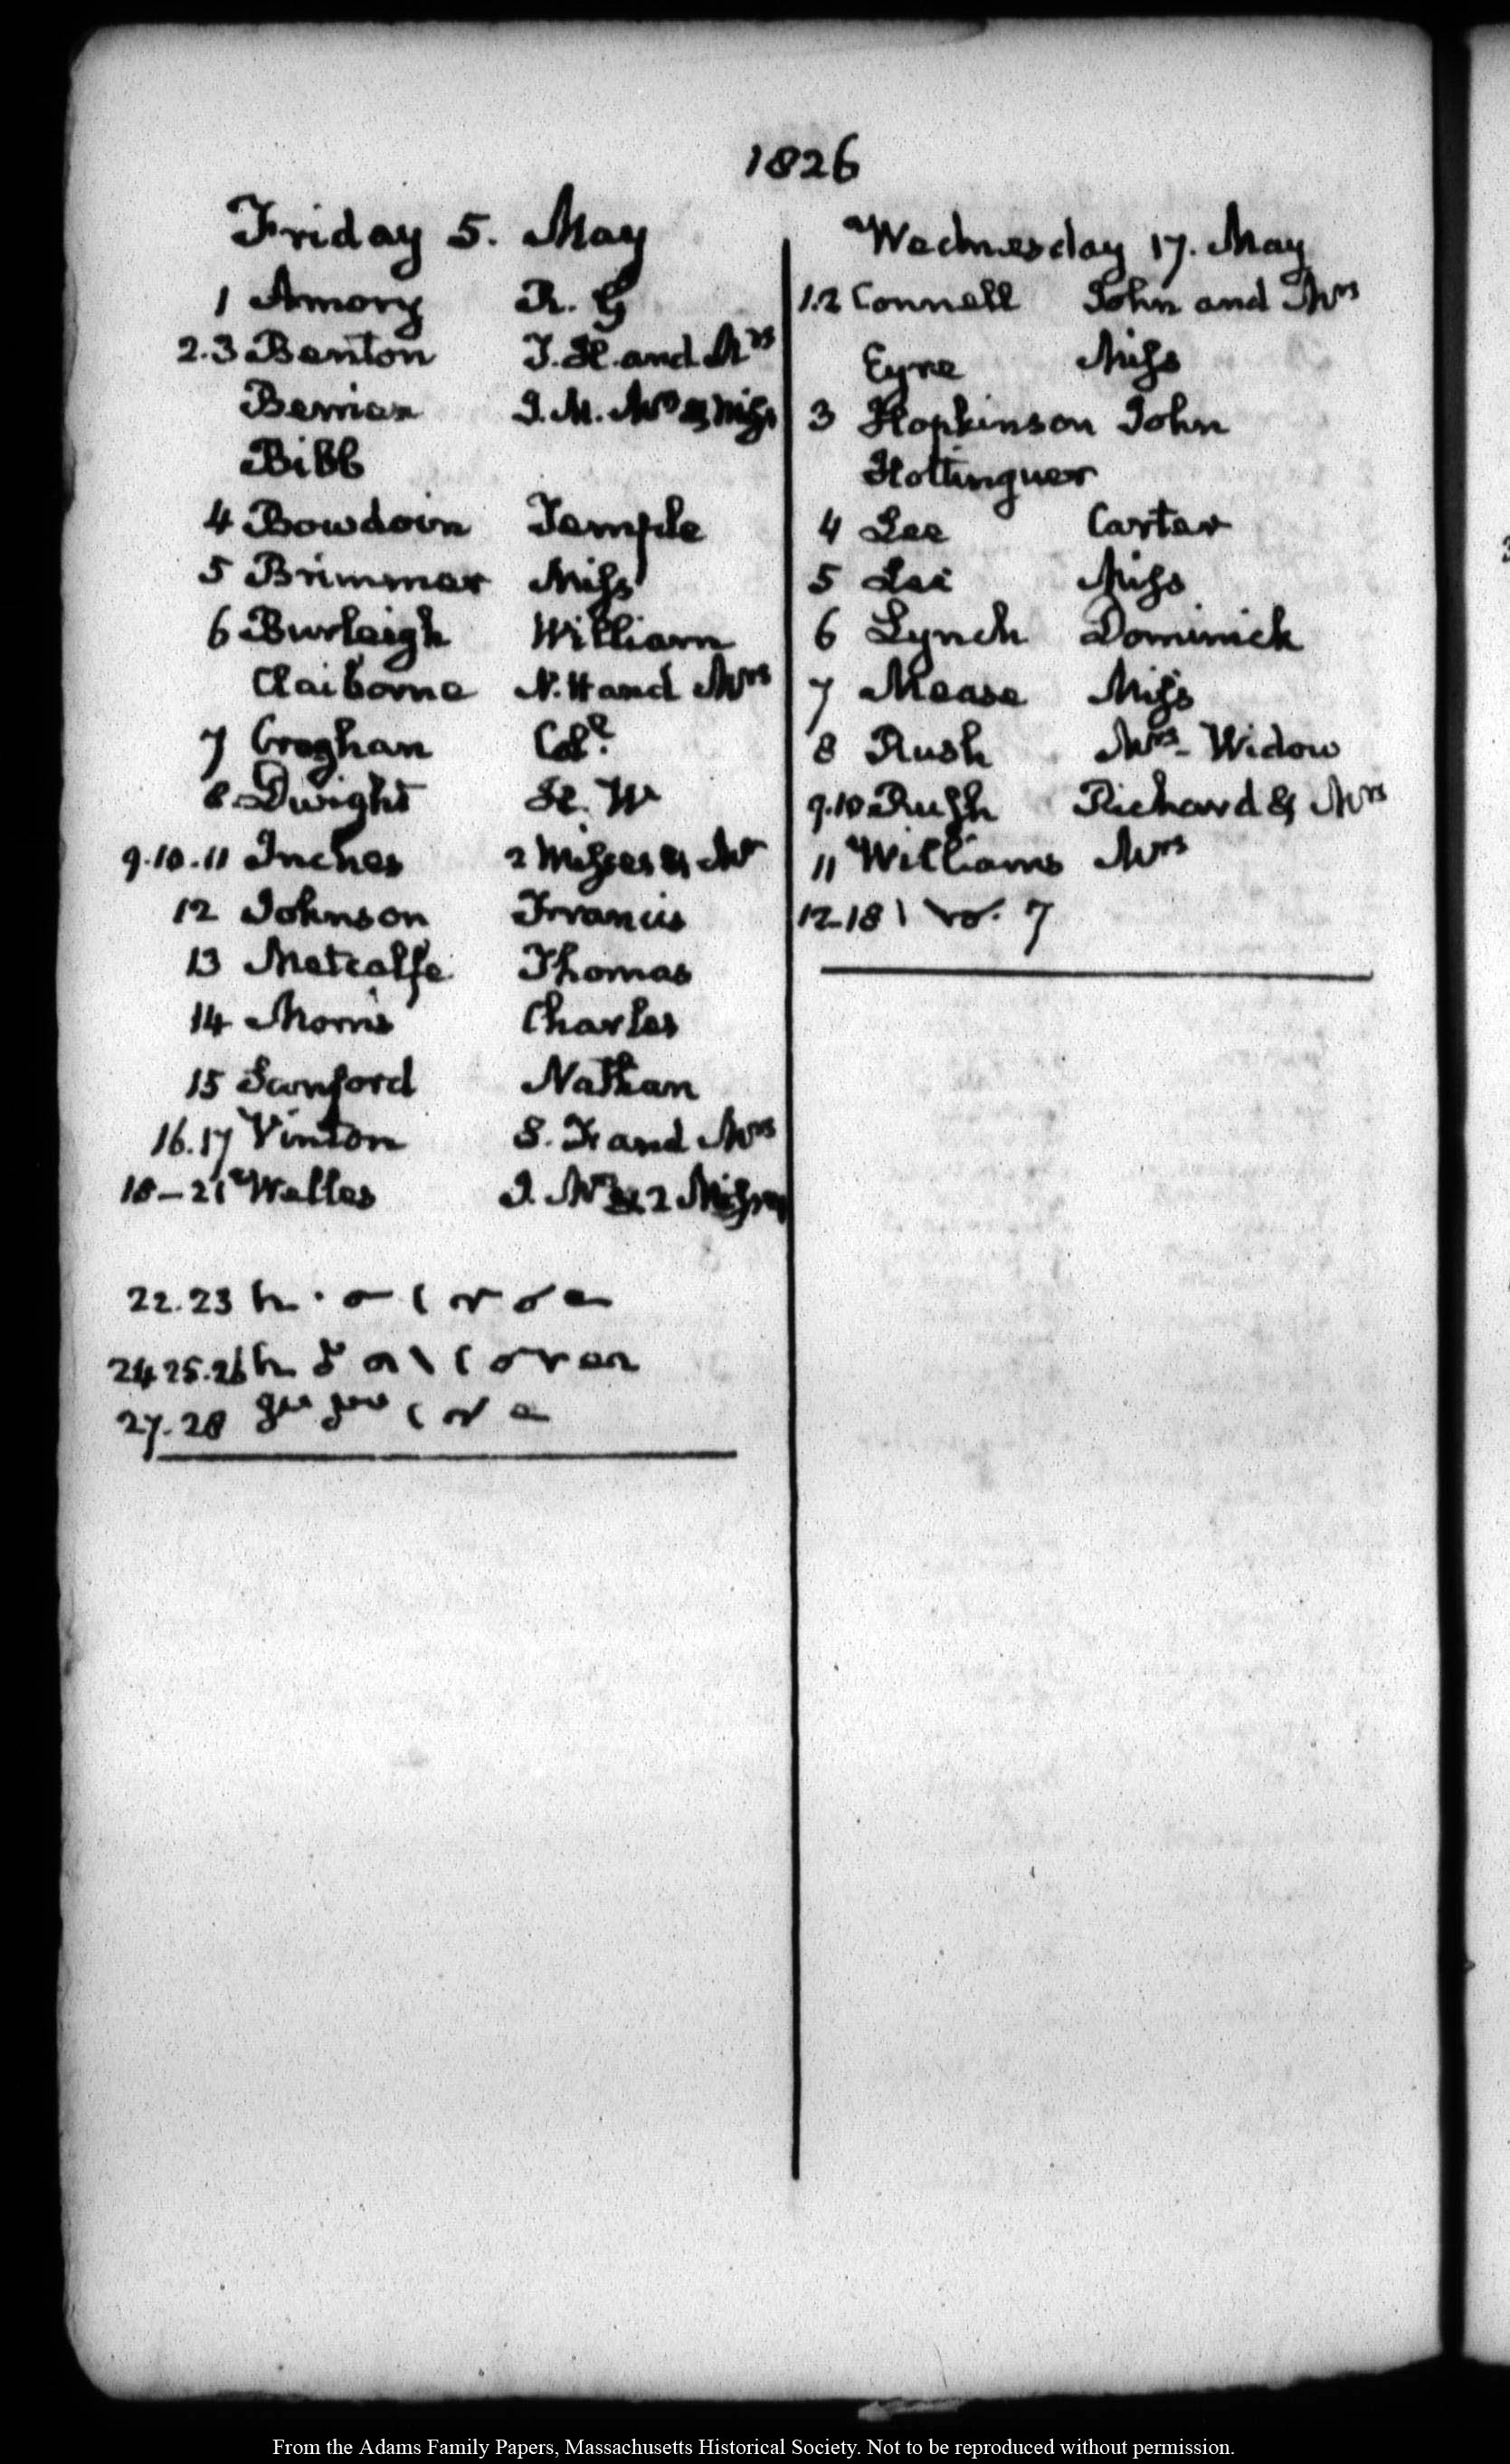 1826
Friday 5. May
1 Amory R. G
2.3 Benton T. H. and Mrs
Berrien J. M. Mrs & Miss
Bibb
4 Bowdoin Temple
5 Brimmer Miss
6 Burleigh William
Claiborne N. H and Mrs
7 Croghan Coll.
8 Dwight H. W
9.10.11 Inches 2 Misses & Mr
12 Johnson Francis
13 Metcalfe Thomas
14 Morris Charles
15 Sanford Nathan
16.17 Vinton S. F and Mrs
18-21 Welles J. Mrs & 2 Misses
22.23
24 25.26
27.28
Wednesday 17. May
1.2 Connell John and Mrs
Eyre Miss
3 Hopkinson John
Hottinguer
4 Lee Carter
5 Lee Miss
6 Lynch Dominick
7 Mease Miss
8 Rush Mrs - Widow
9.10 Rush Richard & Mrs
11 Williams Mrs
12-18 7
From the Adams Family Papers, Massachusetts Historical Society. Not to be reproduced without permission.